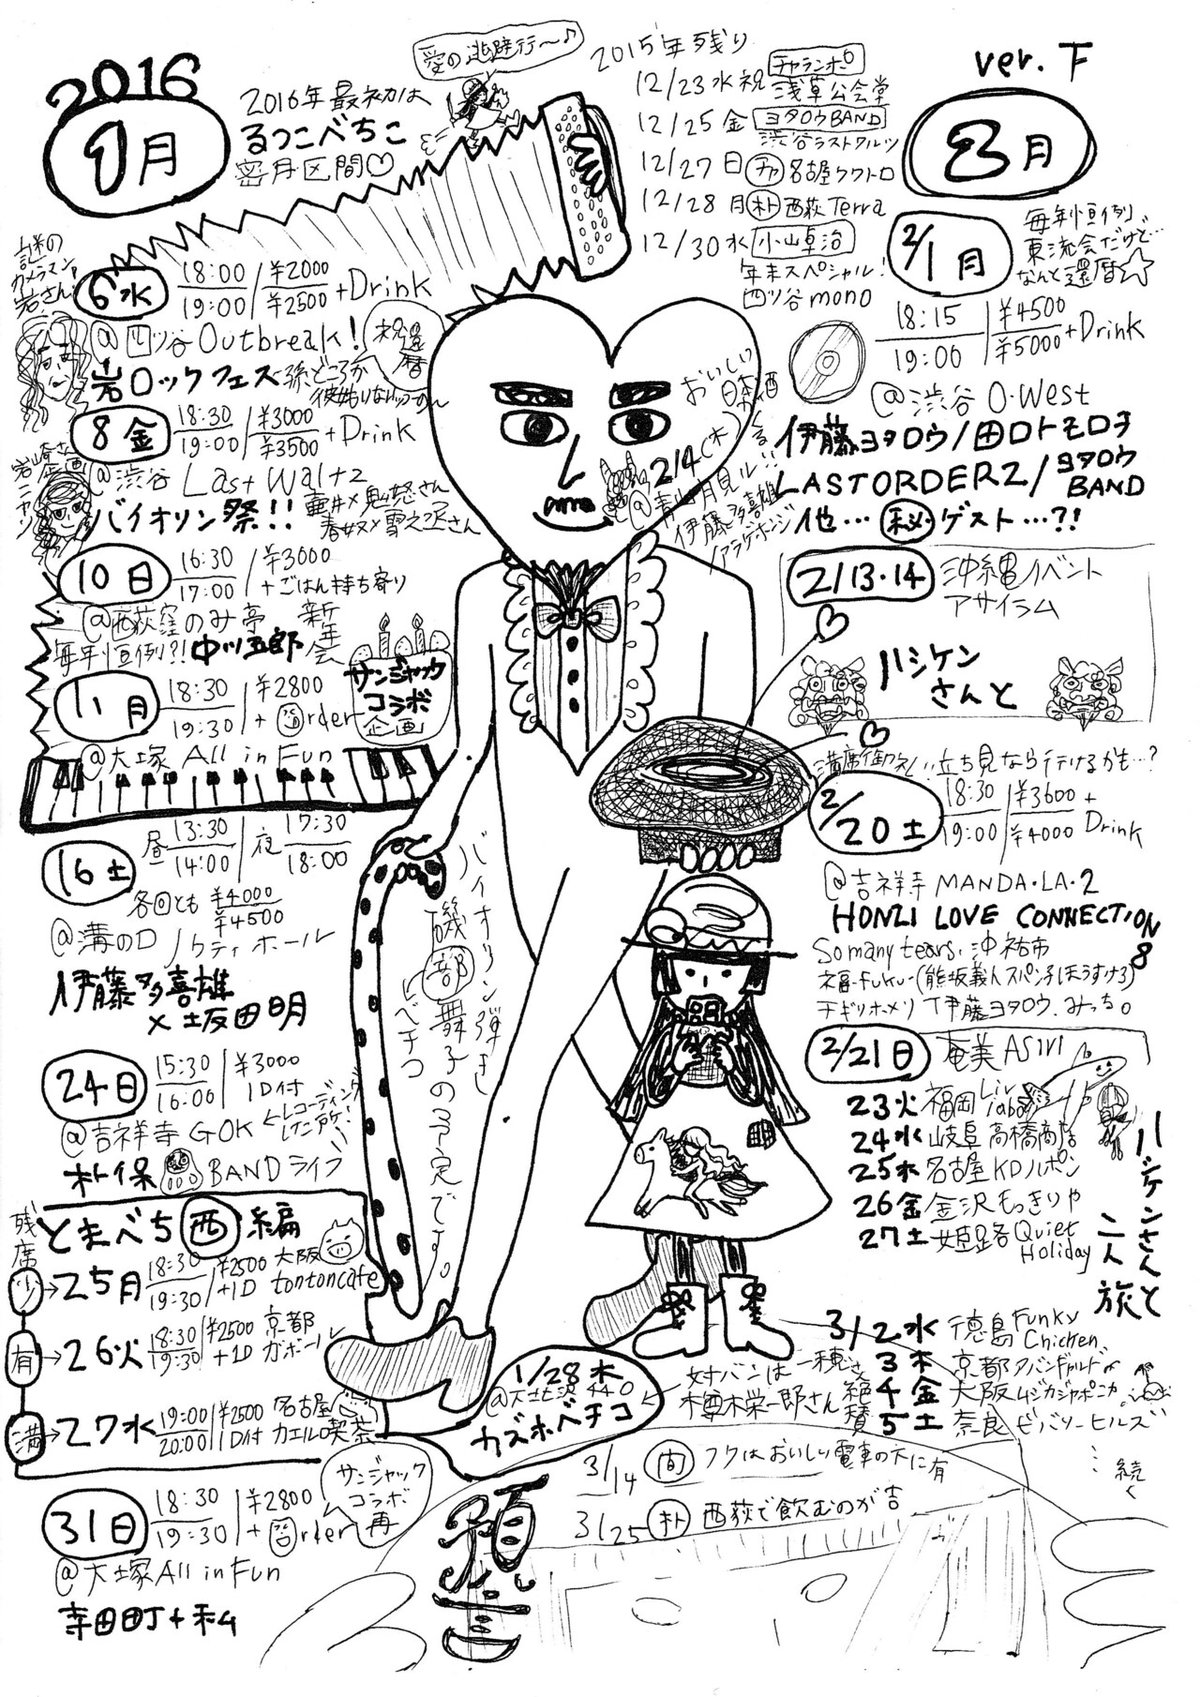 2016
1月
2016年最初は
るつこべちこ
密月区間♡
愛の逃避行〜♪
2015年残り
12/23水祝 チャランポ
浅草公会堂
12/25金 ヨタロウBAND
渋谷ラストワルツ
12/27日 チャ 名古屋クアトロ
12/28月 朴 西荻Terra
12/30水 小山卓治
年末スペシャル!
四ツ谷mono
ver. F
謎の
カメラマン
岩さん!
6水
18:00/¥2000
19:00/¥2500 +Drink
@四ツ谷Outbreak!
祝還暦
岩ロックフェス
孫どころか
8金
18:30/¥3000
19:00/¥3500 +Drink
岩崎さん企画
@渋谷 Last Waltz
バイオリン祭!!
10日
16:30/¥3000
17:00/+ごはん持ち寄り
@西荻窪のみ亭 新年会
毎年恒例?! 中川五郎
11月
18:30/¥2800
19:30/+Order
サンジャック
コラボ
企画
@大塚 All in Fun
16土
昼 13:30
14:00
夜 17:30
18:00
各回とも ¥4000
¥4500
@溝の口 ノクティホール
伊藤多喜雄
×坂田明
24日
15:30/¥3000
16:00/1D付
←レコーディング
した所!
@吉祥寺 GOK
朴保BANDライブ
とまべち西編
残席
少→25月 18:30/¥2500 大阪
19:30/+1D tontoncafe
有→26火 18:30/¥2500 京都
19:30/+1D ガボール
満→27水 19:00/¥2500 名古屋
20:00/1D付 カエルロ喫茶
31日
18:30/¥2800
19:30/+Order
サンジャック
コラボ
再
@大塚All in Fun
寺田町+私
おいしい
日本酒
2/4(木)
@青山月見ル
伊藤多喜雄
バイオリン弾き
磯部舞子の予定です。
ベチコ
1/28木
カズホベチコ
預言
2月
2/1月
毎年恒例
東流会だけど…
なんと還暦☆
18:15/¥4500
19:00/¥5000+Drink
@渋谷 O-West
伊藤ヨタロウ/田口トモロヲ
LASTORDERZ/ヨタロウ
BAND
他…㊙ゲスト…?!
2/13・14
沖縄イベント
アサイラム
ハシケン
さんと
満席御礼、立ち見なら行けるかも…?
2/20土
18:30/¥3600+
19:00/¥4000 Drink
@吉祥寺 MANDA・LA・2
HONZI LOVE CONNECTION
8
So many tears・沖祐市
福-fuku-(熊坂義人 スパン子 ほうすけ3)
チギリホメリ 伊藤ヨタロウ・みっち。
2/21日 奄美ASIVI
23火 福岡 Liv labo
24水 岐阜 高橋商店
25木 名古屋KDハポン
26金 金沢もっきりや
27土 姫路Quiet
Holiday
ハシケンさんと
二人旅
3/2水 徳島Funky
Chicken
3木 京都アバンギルド
4金 大阪ムジカジャポニカ
5土 奈良ビバリーヒルズ
対バンは一穂さん
樽木栄一郎さん
絶賛
3/14 旬 フクはおいしい電車の穴に有
3/25 朴 西荻で飲むのが吉
…続く